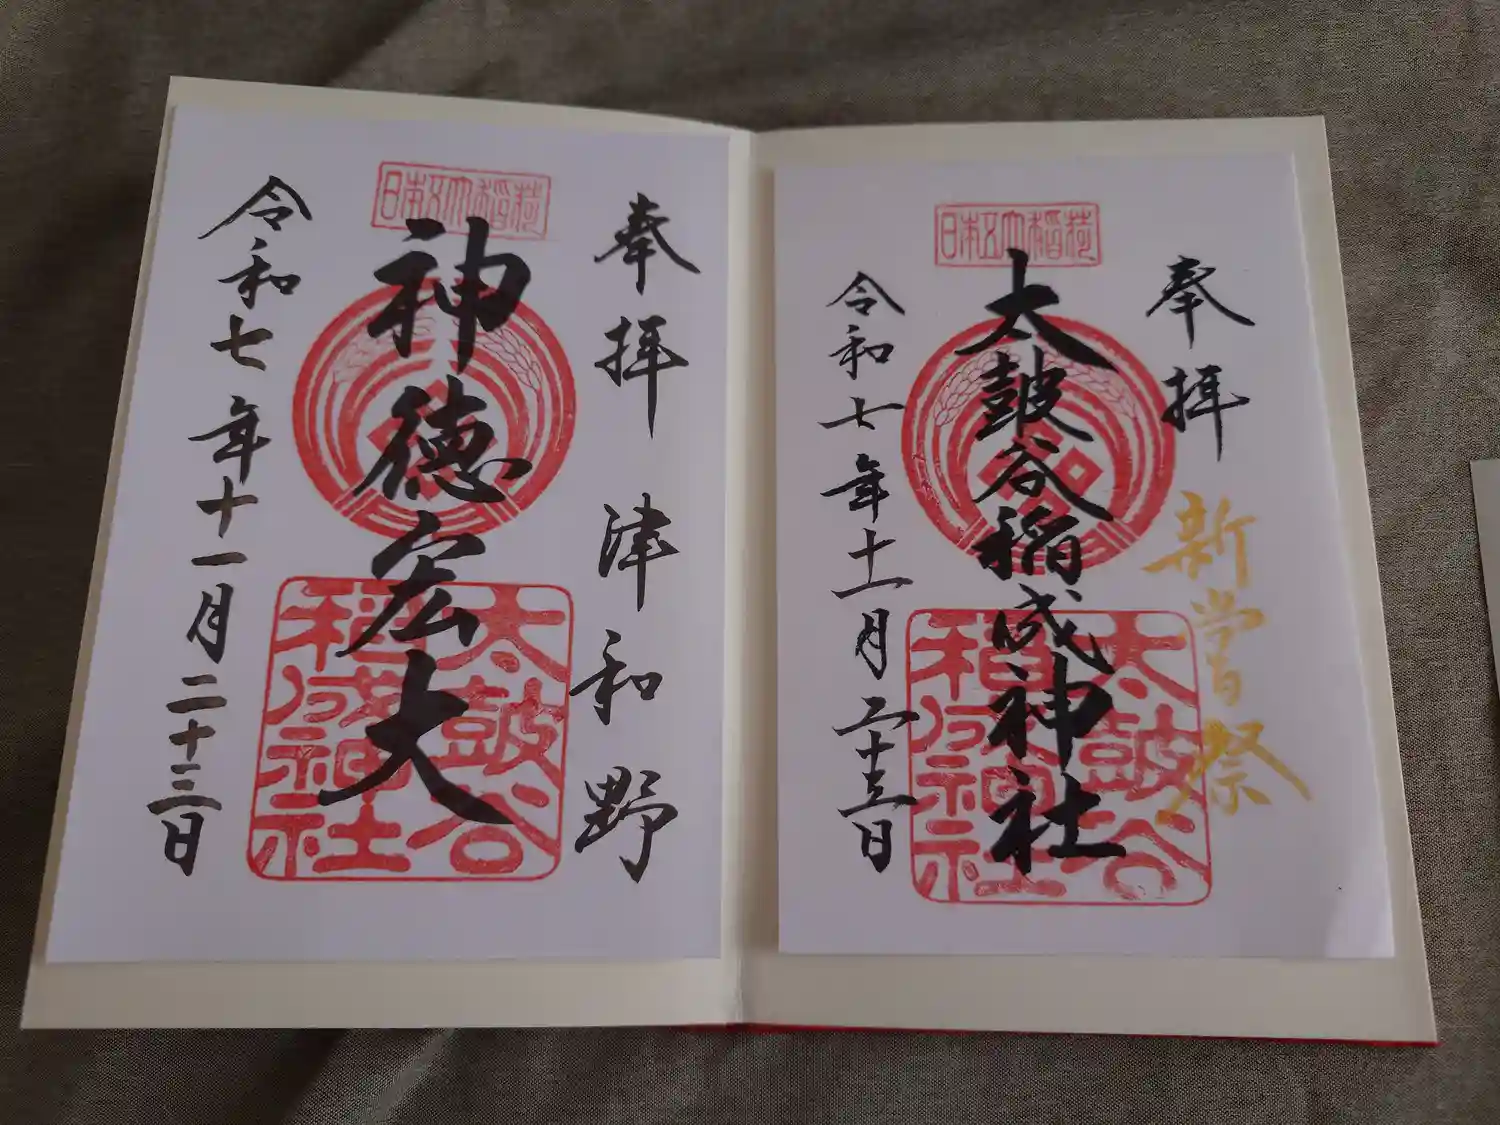 奉拝
新嘗祭
日本五大稲荷
太皷谷稲成神社
太皷谷稲成神社
令和七年十一月二十三日
奉拝 津和野
日本五大稲荷
神徳宏大
太皷谷稲成神社
令和七年十一月二十三日